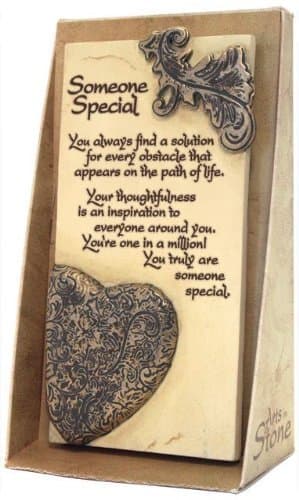 Someone
Special
You always find a solution
for every obstacle that
appears on the path of life.
Your thoughtfulness
is an inspiration to
everyone around you.
You're one in a million!
You truly are
someone
special.
Arts in
Stone